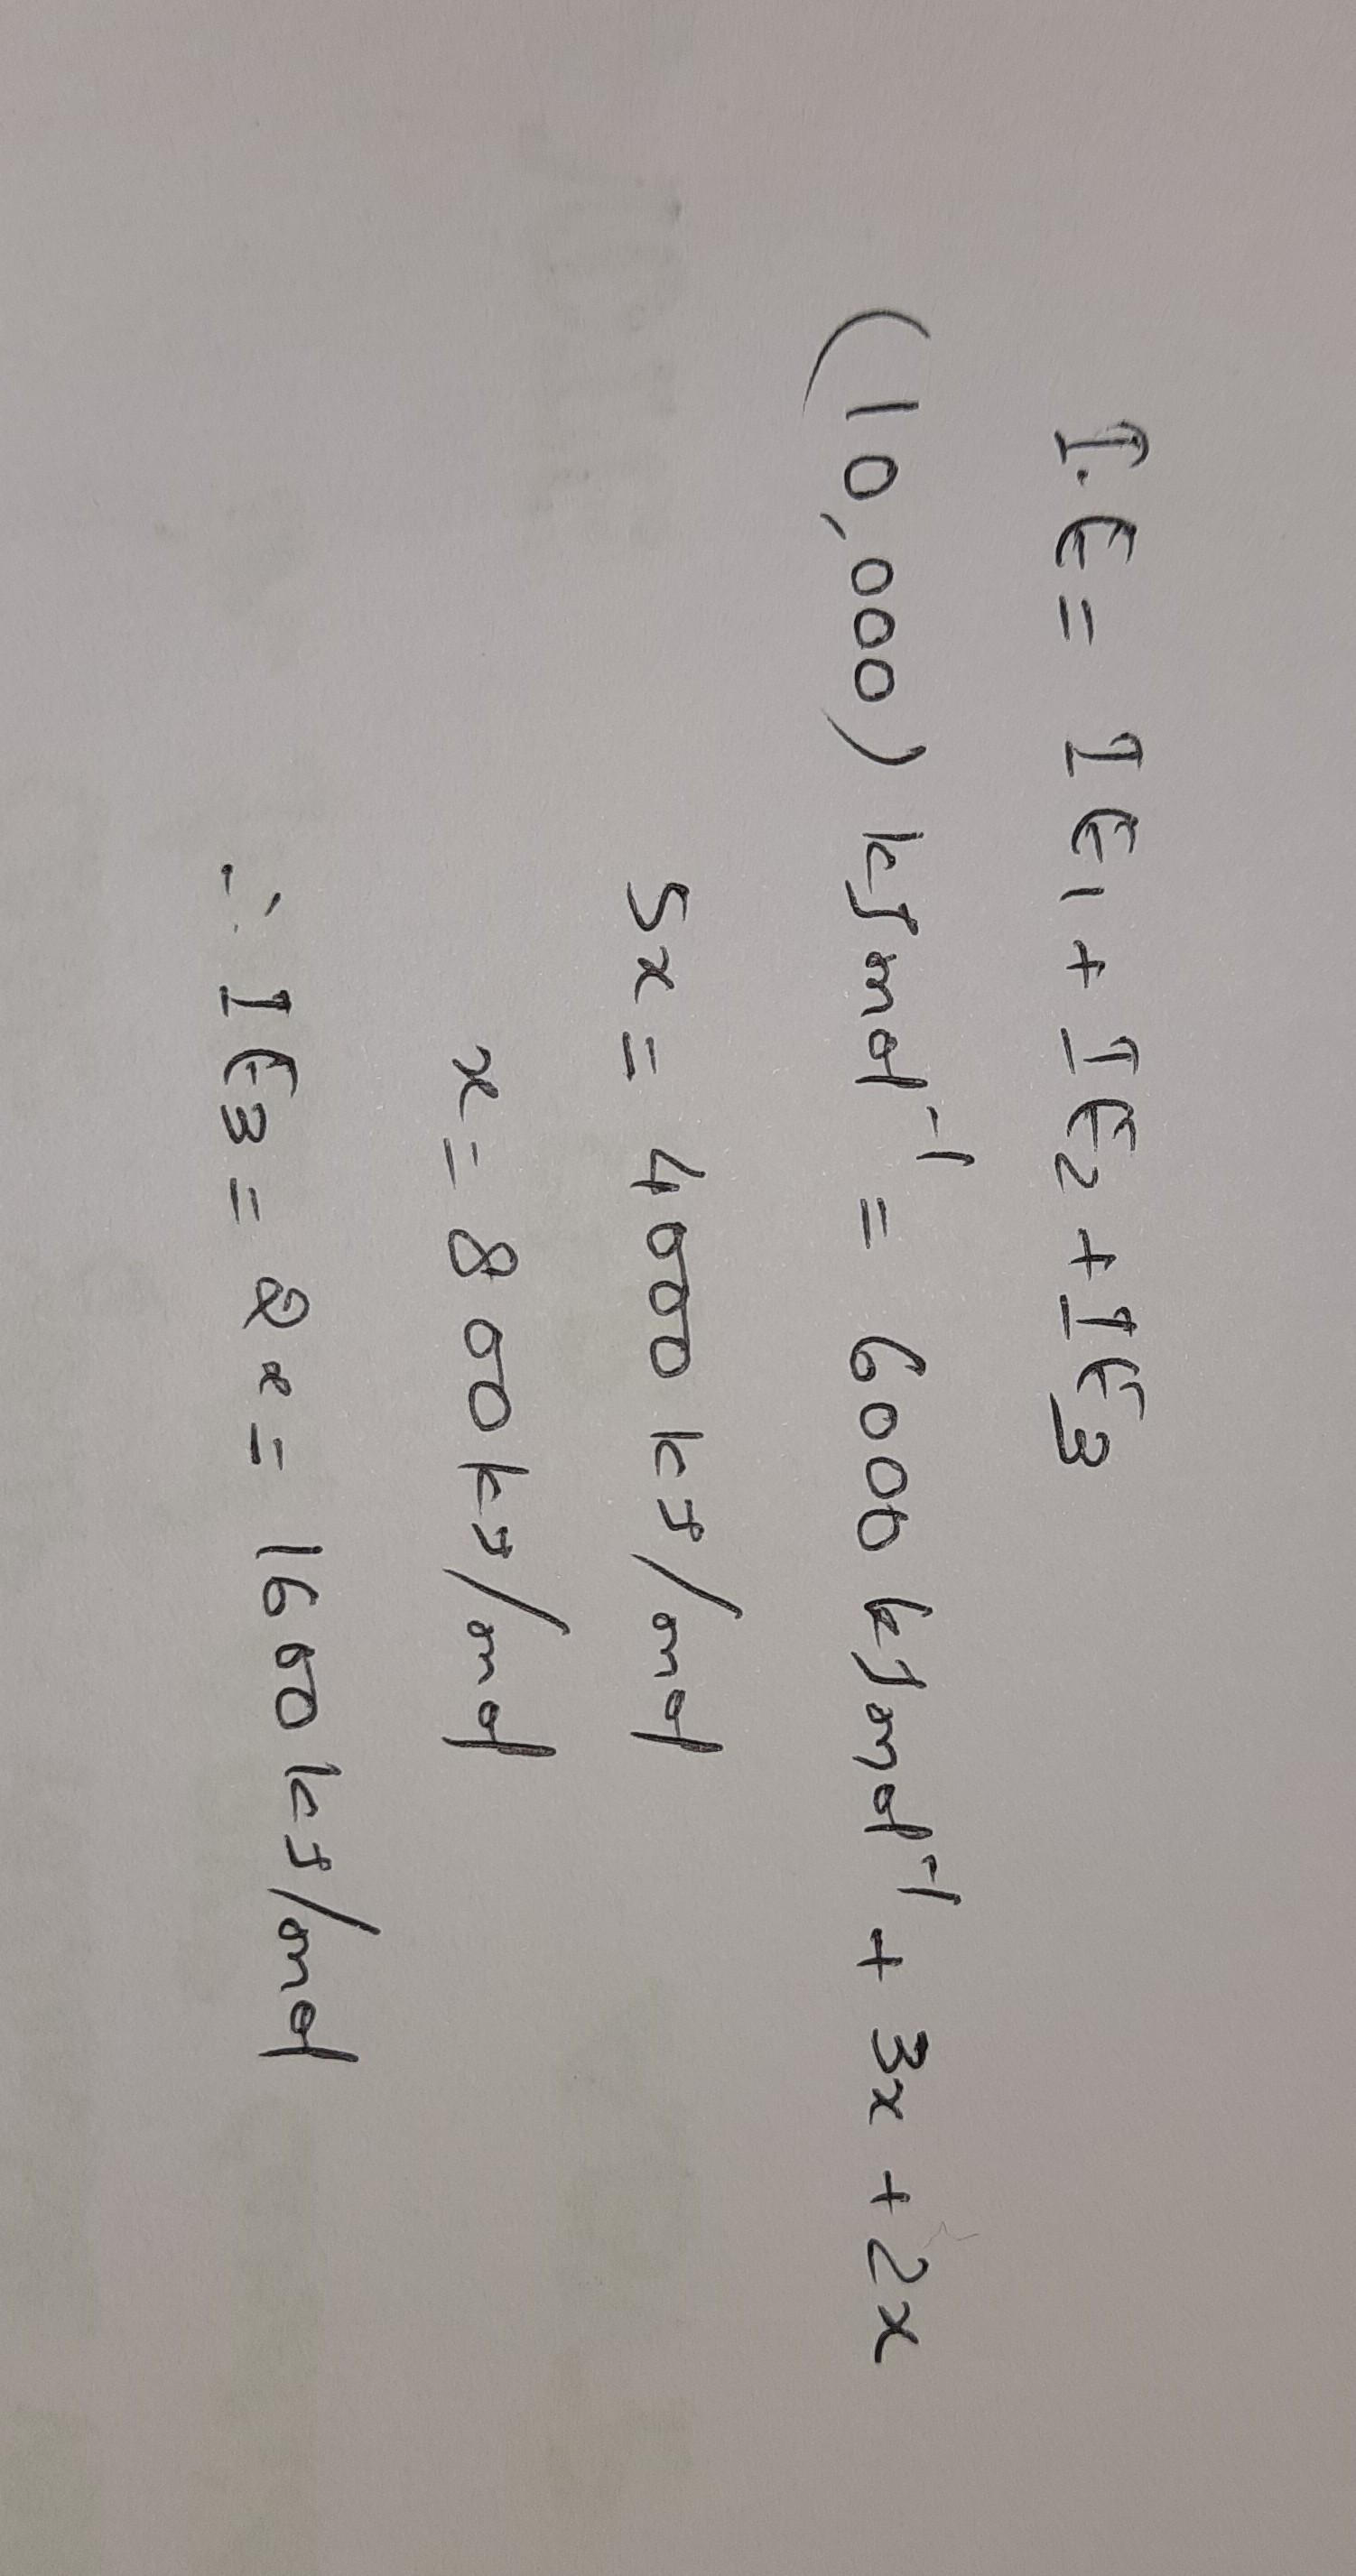 I.E = IE1 + IE2 + IE3
(10,000) kJ mol⁻¹ = 6000 kJ mol⁻¹ + 3x + 2x
5x = 4000 kJ/mol
x = 800 kJ/mol
∴ IE3 = 2x = 1600 kJ/mol